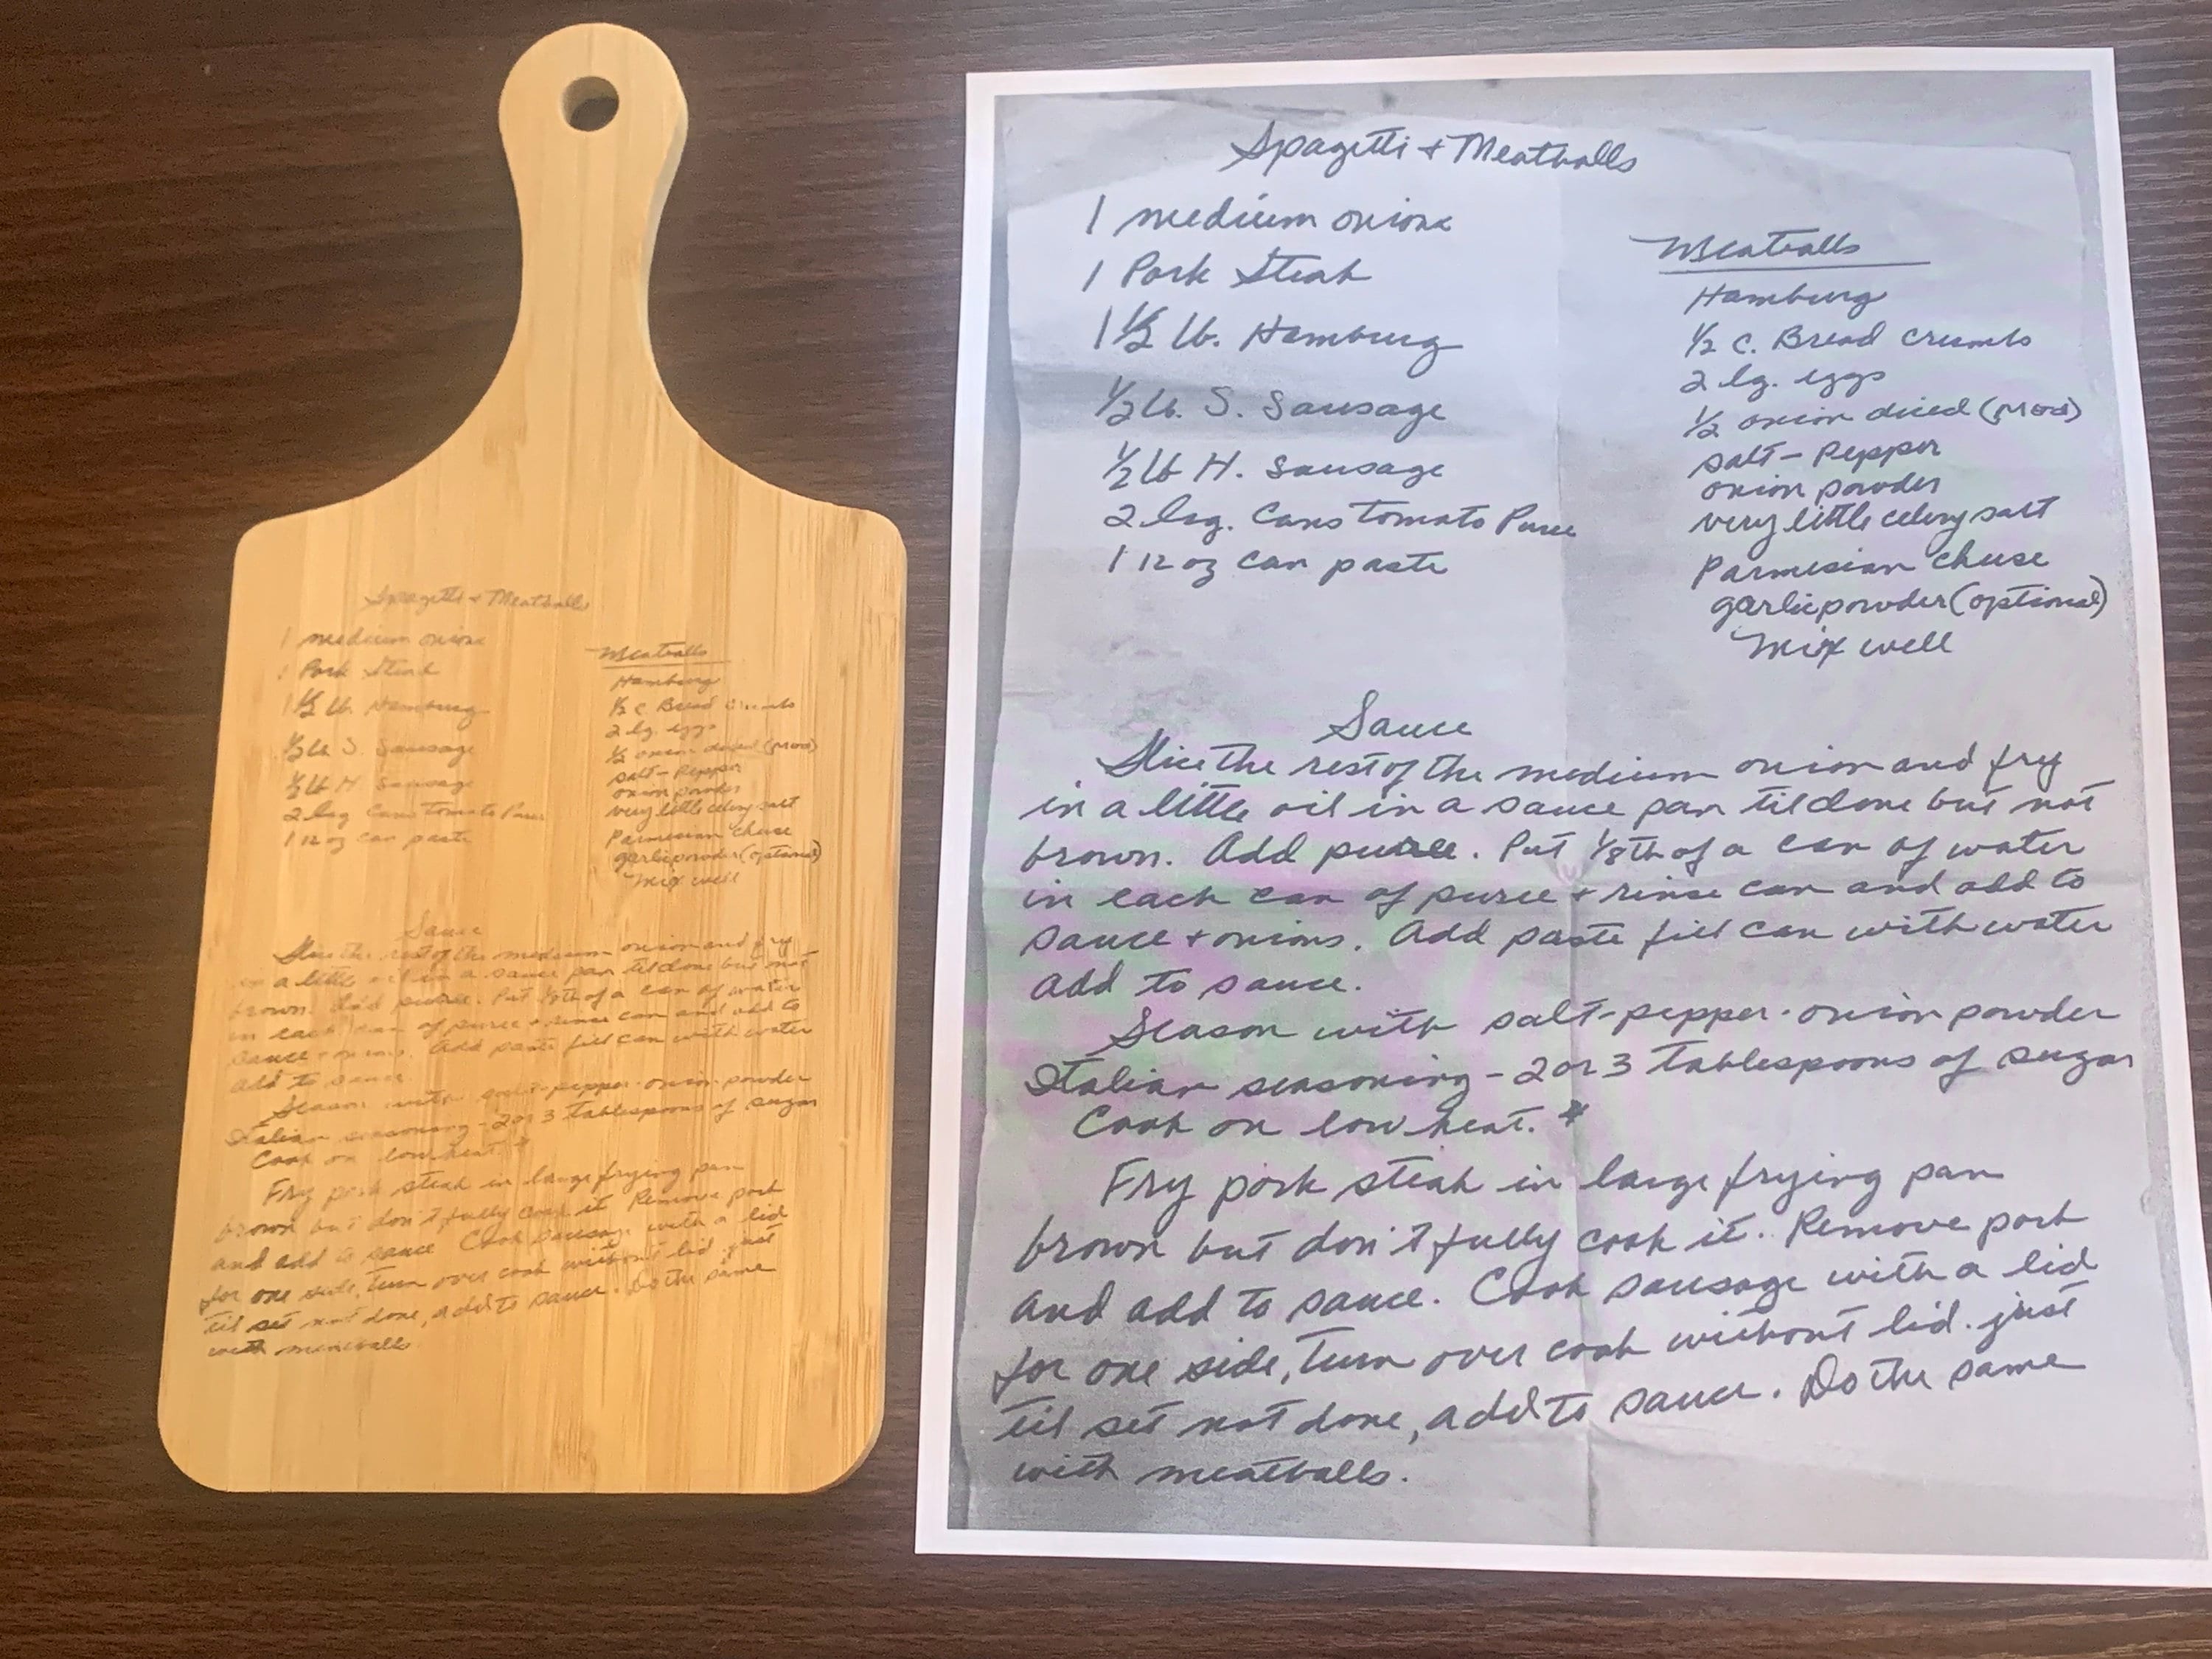 Spagetti + Meatballs
1 medium onion
1 Pork Steak
1 1/2 lb. Hamburg
1/2 lb. S. Sausage
1/2 lb H. Sausage
2 lag Cans tomato Puree
1 12 oz can paste
Meatballs
Hamburg
1/2 C Bread Crumbs
2 lg. eggs
1/2 onion diced (med)
salt - Pepper
onion powder
very little celery salt
Parmesian Cheese
garlic powder (optional)
Mix well
Sauce
Slice the rest of the medium onion and fry
in a little oil in a sauce pan til done but not
brown. Add puree. Put 1/8th of a can of water
in each can of puree + rinse can and add to
sauce + onions. Add paste fill can with water
add to sauce.
Season with salt-pepper-onion powder
Italian seasoning - 2 or 3 tablespoons of sugar
Cook on low heat. *
Fry pork steak in large frying pan
brown but don't fully cook it. Remove pork
and add to sauce. Cook sausage with a lid
for one side, turn over cook without lid. just
til set not done, add to sauce. Do the same
with meatballs.
Spagetti + Meatballs
1 medium onion
1 Pork Steak
1 1/2 lb. Hamburg
1/2 lb. S. Sausage
1/2 lb H. Sausage
2 lag. Cans tomato Puree
1 12 oz can paste
Meatballs
Hamburg
1/2 C. Bread Crumbs
2 lg. eggs
1/2 onion diced (med)
salt - Pepper
onion powder
very little celery salt
Parmesian Cheese
garlic powder (optional)
Mix well
Sauce
Slice the rest of the medium onion and fry
in a little oil in a sauce pan til done but not
brown. Add puree. Put 1/8th of a can of water
in each can of puree + rinse can and add to
sauce + onions. Add paste fill can with water
add to sauce.
Season with salt-pepper-onion powder
Italian seasoning - 2 or 3 tablespoons of sugar
Cook on low heat. *
Fry pork steak in large frying pan
brown but don't fully cook it. Remove pork
and add to sauce. Cook sausage with a lid
for one side, turn over cook without lid. just
til set not done, add to sauce. Do the same
with meatballs.